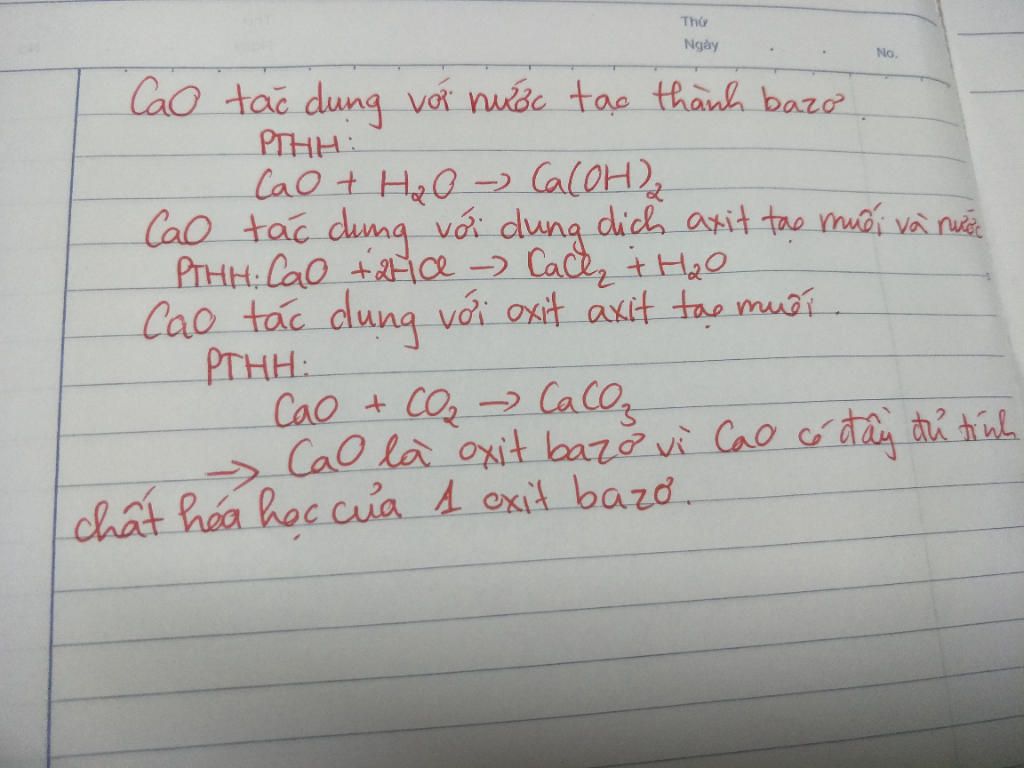 Thứ
Ngày . . No.
CaO tác dụng với nước tạo thành bazơ.
PTHH:
CaO + H₂O → Ca(OH)₂
CaO tác dụng với dung dịch axit tạo muối và nước
PTHH: CaO + 2HCl → CaCl₂ + H₂O
CaO tác dụng với oxit axit tạo muối.
PTHH:
CaO + CO₂ → CaCO₃
→ CaO là oxit bazơ vì CaO có đầy đủ tính
chất hóa học của 1 oxit bazơ.